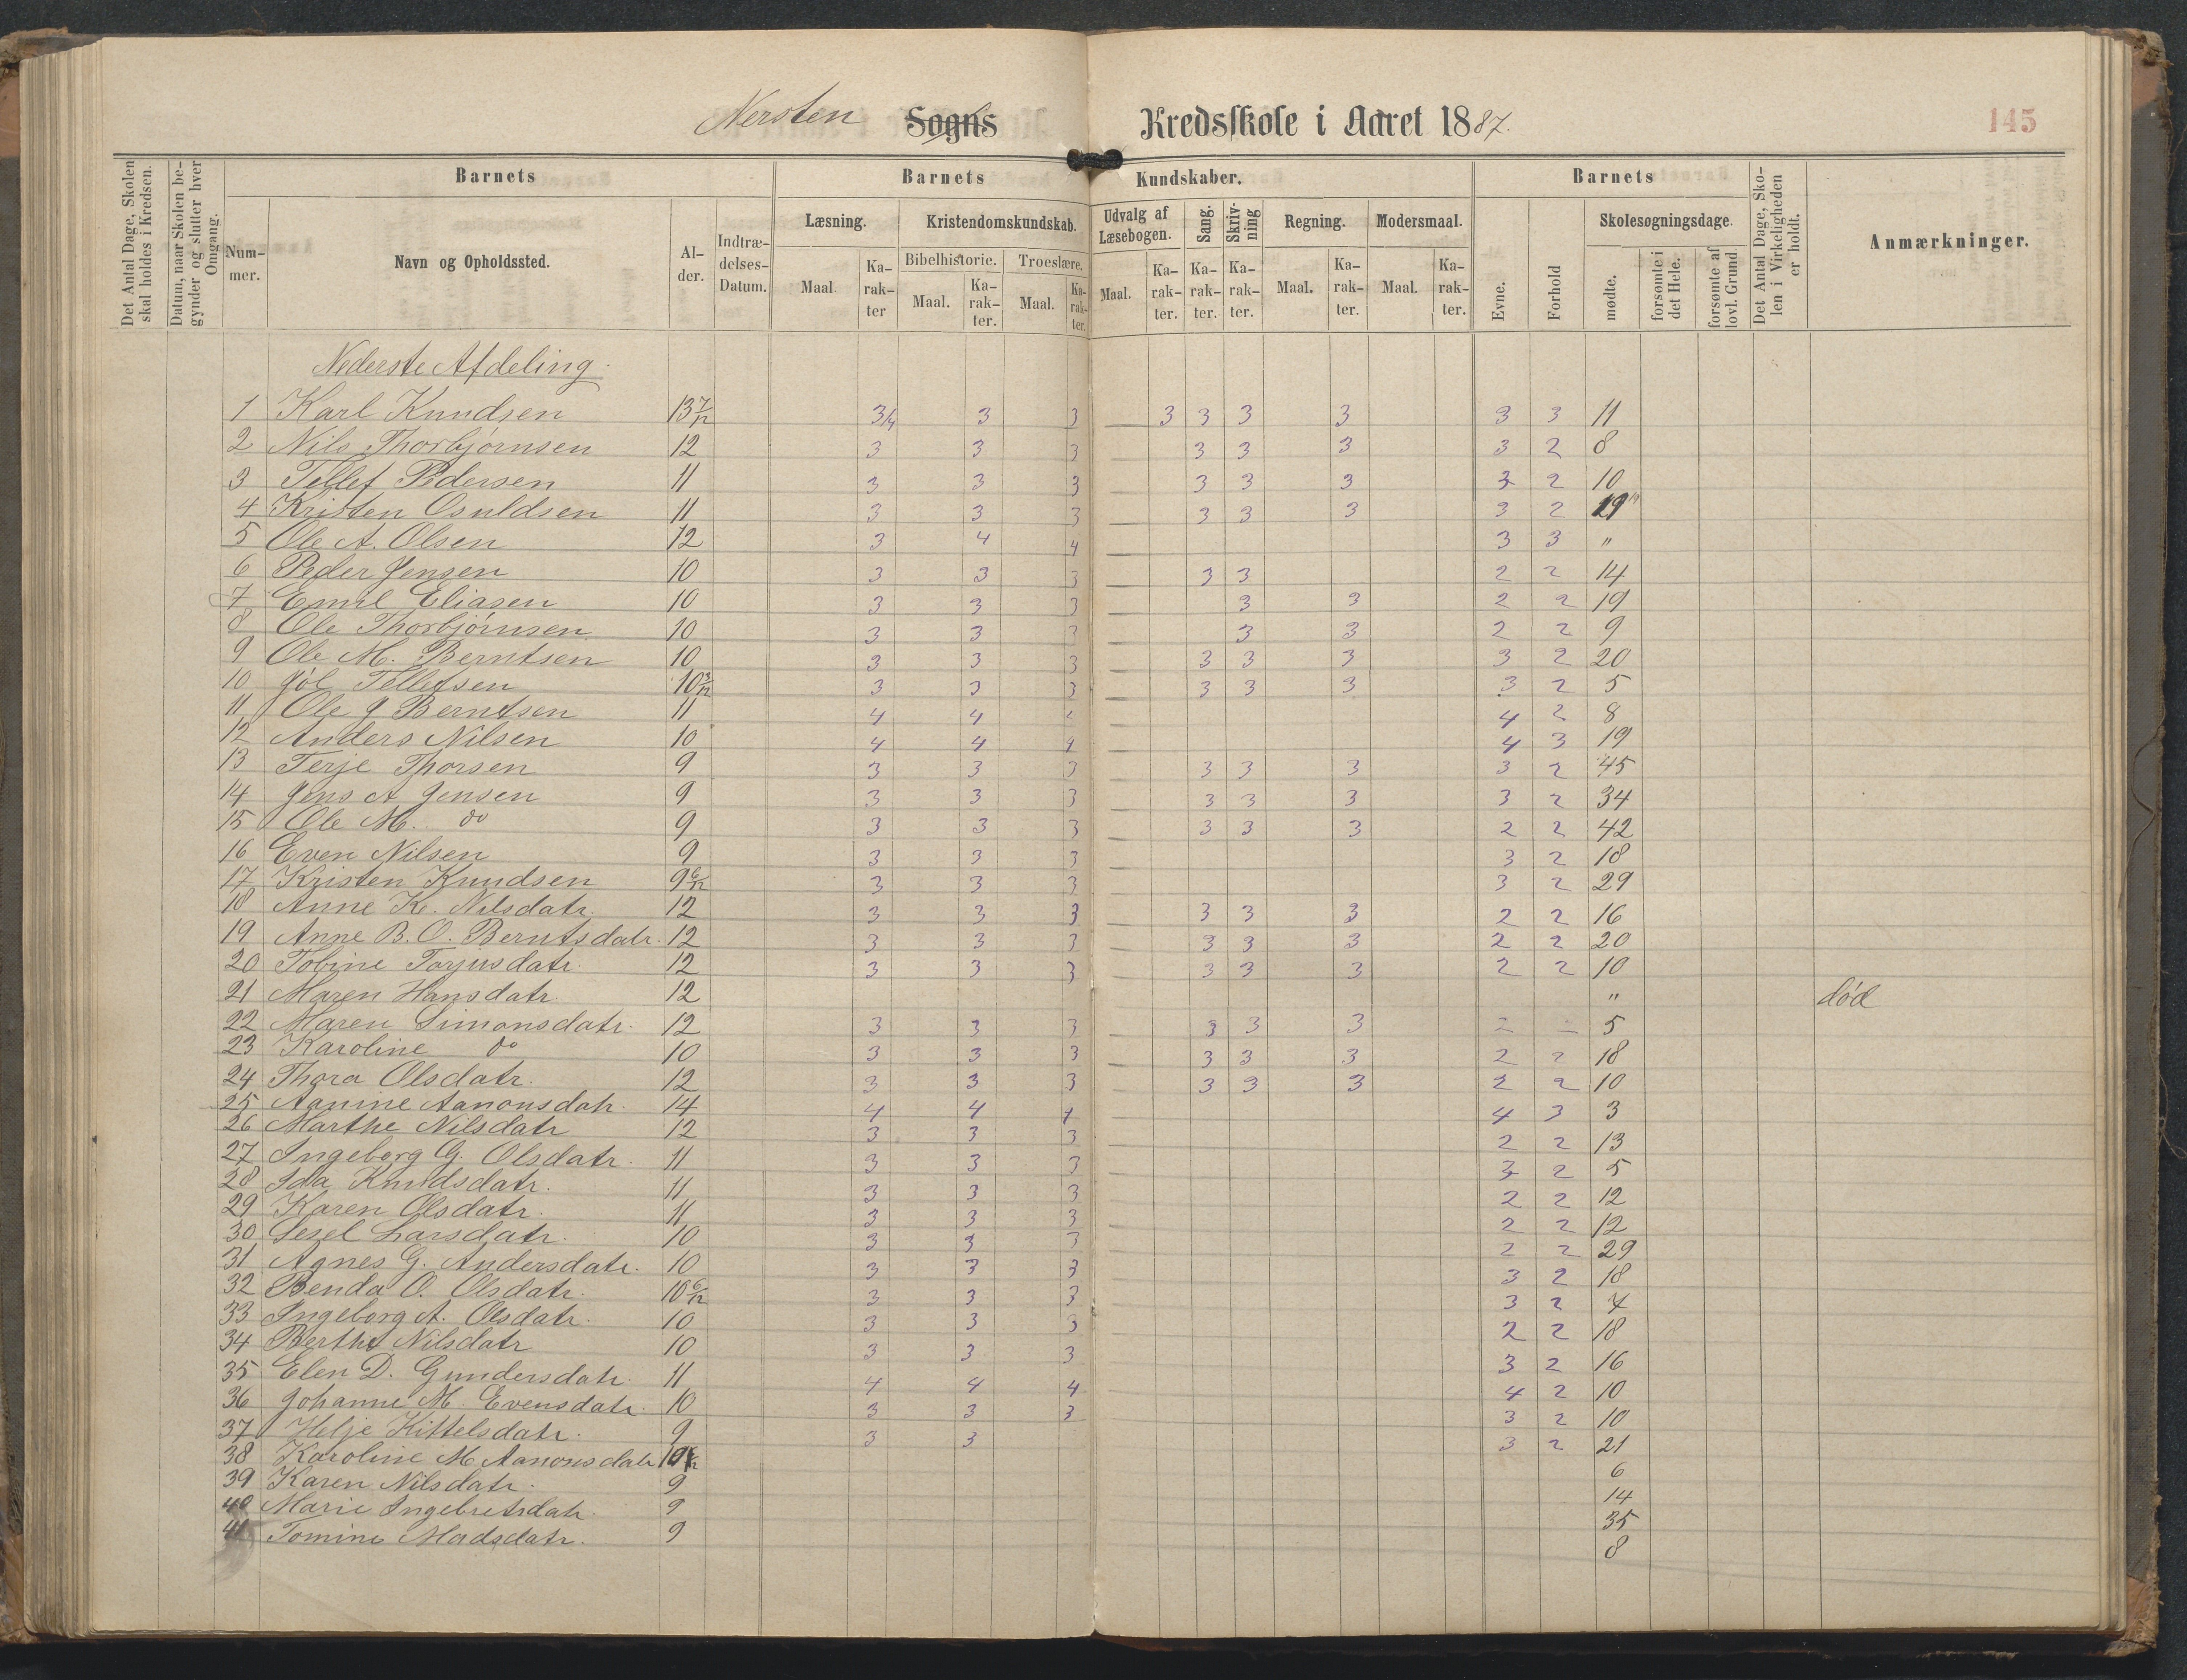 Nersten Sogns Kredsskole i Aaret 1887. 145
Det Antal Dage, Skolen skal holdes i Kredsen.
Datum, naar Skolen begynder og slutter hver Omgang.
Barnets Barnets Kundskaber. Barnets
Det Antal Dage, Skolen i Virkeligheden er holdt.
Anmærkninger.
Nummer. Navn og Opholdssted. Alder. Indtrædelses-Datum.
Læsning. Kristendomskundskab. Udvalg af Læsebogen. Sang. Skrivning Regning. Modersmaal. Evne. Forhold Skolesøgningsdage.
Bibelhistorie. Troeslære.
Maal. Karakter Maal. Karakter. Maal. Karakter. Maal. Karakter. Karakter. Karakter. Maal. Karakter. Maal. Karakter. mødte. forsømte i det Hele. forsømte af lovl. Grund
Nederste Afdeling.
1 Karl Knudsen 13 7/12 3/4 3 3 3 3 3 3 3 3 11
2 Nils Thorbjørnsen 12 3 3 3 3 3 3 3 2 8
3 Tellef Pedersen 11 3 3 3 3 3 3 3 2 10
4 Kristen Osuldsen 11 3 3 3 3 3 3 3 2 19
5 Ole A. Olsen 12 3 4 4 3 3 "
6 Peder Jensen 10 3 3 3 3 3 2 2 14
7 Emil Eliasen 10 3 3 3 3 3 2 2 19
8 Ole Thorbjørnsen 10 3 3 3 3 3 2 2 9
9 Ole M. Berntsen 10 3 3 3 3 3 3 3 2 20
10 Jól Tellefsen 10 3/12 3 3 3 3 3 3 3 2 5
11 Ole J Berntsen 11 4 4 4 4 2 8
12 Anders Nilsen 10 4 4 4 4 3 19
13 Terje Thorsen 9 3 3 3 3 3 3 3 2 45
14 Jens A Jensen 9 3 3 3 3 3 3 3 2 34
15 Ole M. do 9 3 3 3 3 3 3 2 2 42
16 Even Nilsen 9 3 3 3 3 2 18
17 Kristen Knudsen 9 6/12 3 3 3 3 2 29
18 Anne K. Nilsdatr. 12 3 3 3 3 3 3 2 2 16
19 Anne B. O. Berntsdatr. 12 3 3 3 3 3 3 2 2 20
20 Tobine Torjusdatr. 12 3 3 3 3 3 3 2 2 10
21 Maren Hansdatr. 12 " död
22 Maren Simonsdatr. 12 3 3 3 3 3 3 2 2 5
23 Karoline do 10 3 3 3 3 3 3 2 2 18
24 Thora Olsdatr. 12 3 3 3 3 3 3 2 2 10
25 Aanine Aanonsdatr. 14 4 4 4 4 3 3
26 Marthe Nilsdatr 12 3 3 3 2 2 13
27 Ingeborg G. Olsdatr. 11 3 3 3 3 2 5
28 Ida Knudsdatr. 11 3 3 3 2 2 12
29 Karen Olsdatr. 11 3 3 3 2 2 12
30 Sesel Larsdatr. 10 3 3 3 2 2 29
31 Agnes G. Andersdatr. 10 3 3 3 3 2 18
32 Benda O. Olsdatr. 10 6/12 3 3 3 3 2
33 Ingeborg A. Olsdatr. 10 3 3 3 2 2 18
34 Berthe Nilsdatr 10 3 3 3 3 2 16
35 Elen D. Gundersdatr. 11 4 4 4 4 2 10
36 Johanne M. Evensdatr. 10 3 3 3 3 2 10
37 Helje Kittelsdatr. 9 3 3 3 2 21
38 Karoline M. Aanonsdatr 6
39 Karen Nilsdatr. 9 14
40 Marie Ingebretsdatr. 9 35
41 Tomine Madsdatr. 9 8